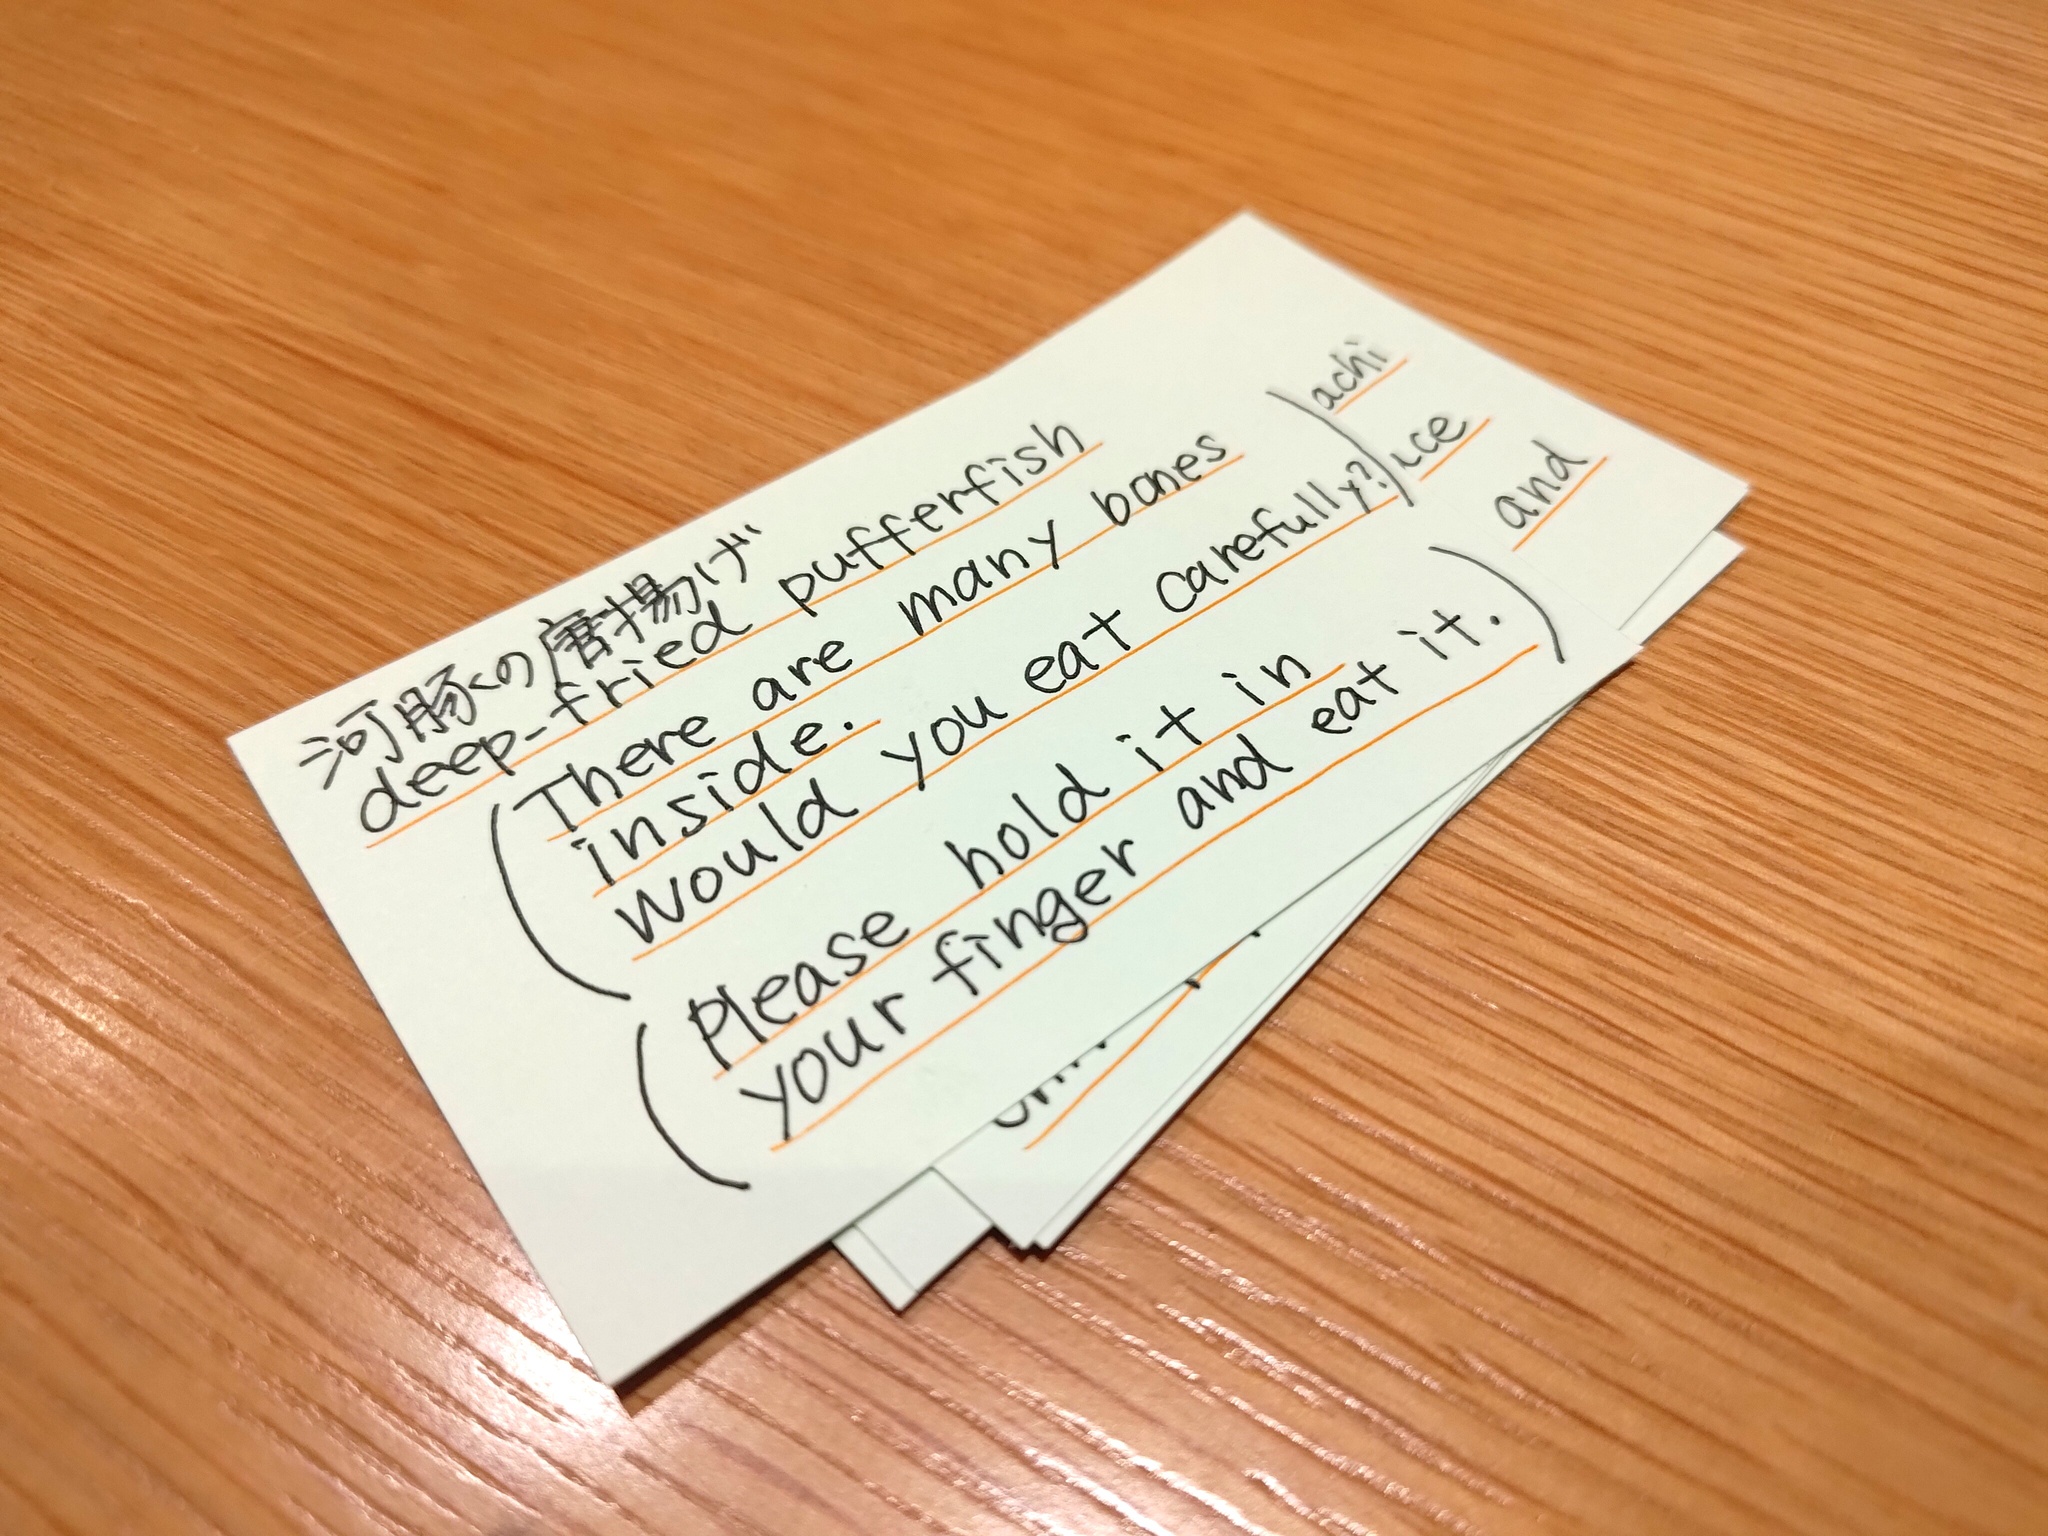 河豚くの唐揚げ
deep-fried pufferfish
(There are many bones
inside.
would you eat carefully?)
(Please hold it in
your finger and eat it.)
achi
ice
and